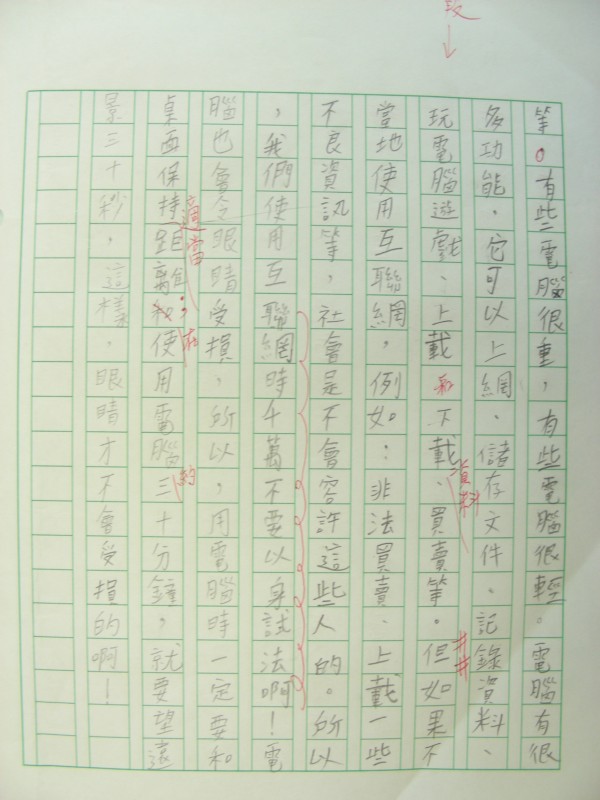 等。有些電腦很重，有些電腦很輕。電腦有很
多功能，它可以上網、儲存文件、記錄資料、
玩電腦遊戲、上載和下載資料、買賣等。但如果不
當地使用互聯網，例如：非法買賣、上載一些
不良資訊等，社會是不會容許這些人的。所以
，我們使用互聯網時千萬不要以身試法啊！電
腦也會令眼睛受損，所以，用電腦時一定要和
桌面保持適當距離；在使用電腦約三十分鐘，就要望遠
景三十秒，這樣，眼睛才不會受損的啊！
段